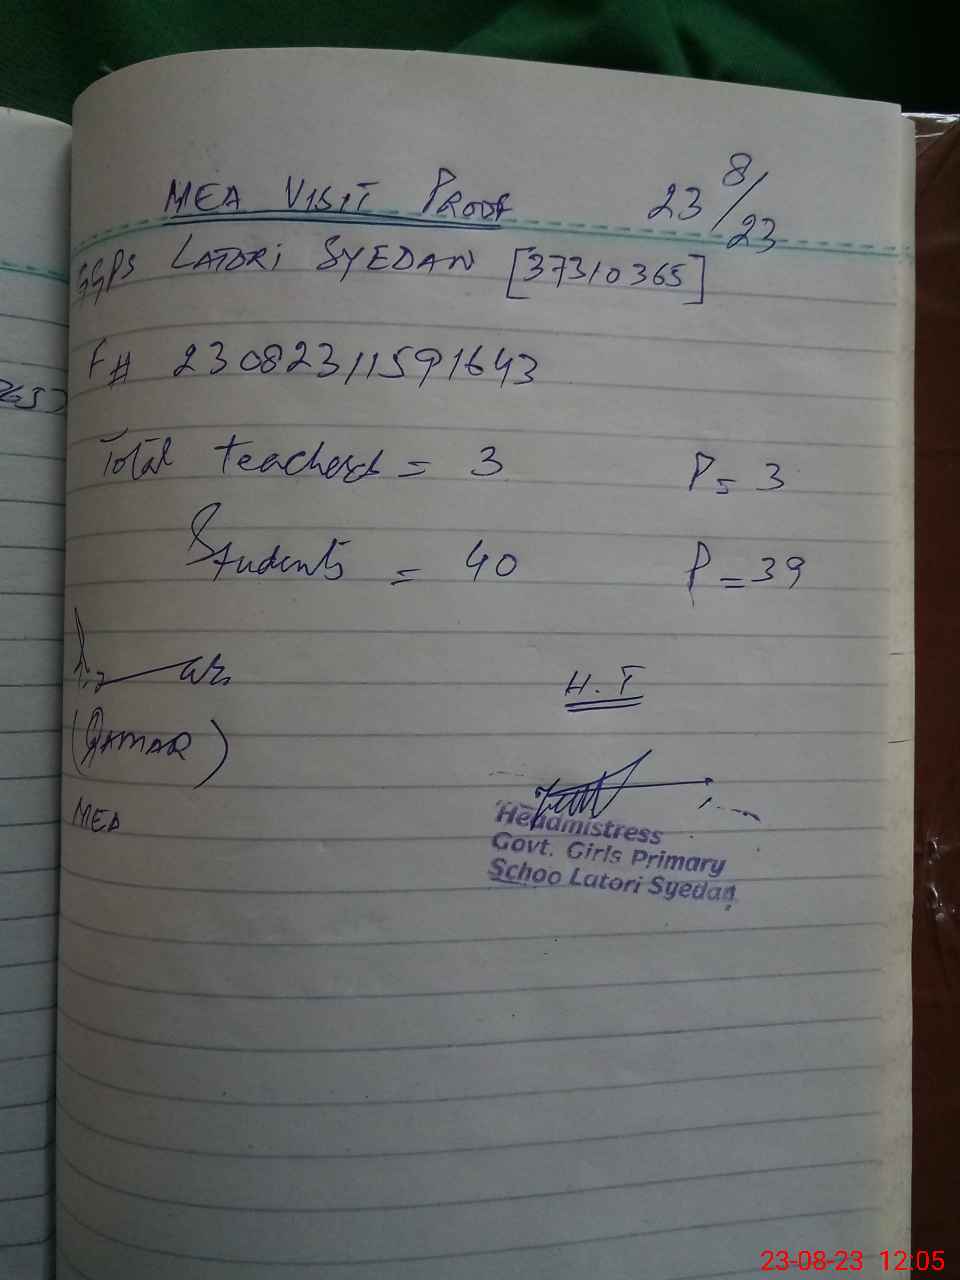 MEA VISIT PROOF 23/8/23
GGPS LATORI SYEDAN [37310365]
F# 23082311591643
Total teachers = 3 P = 3
Students = 40 P = 39
H.T
(QAMAR)
MEA
Headmistress
Govt. Girls Primary
Schoo Latori Syedan
23-08-23 12:05